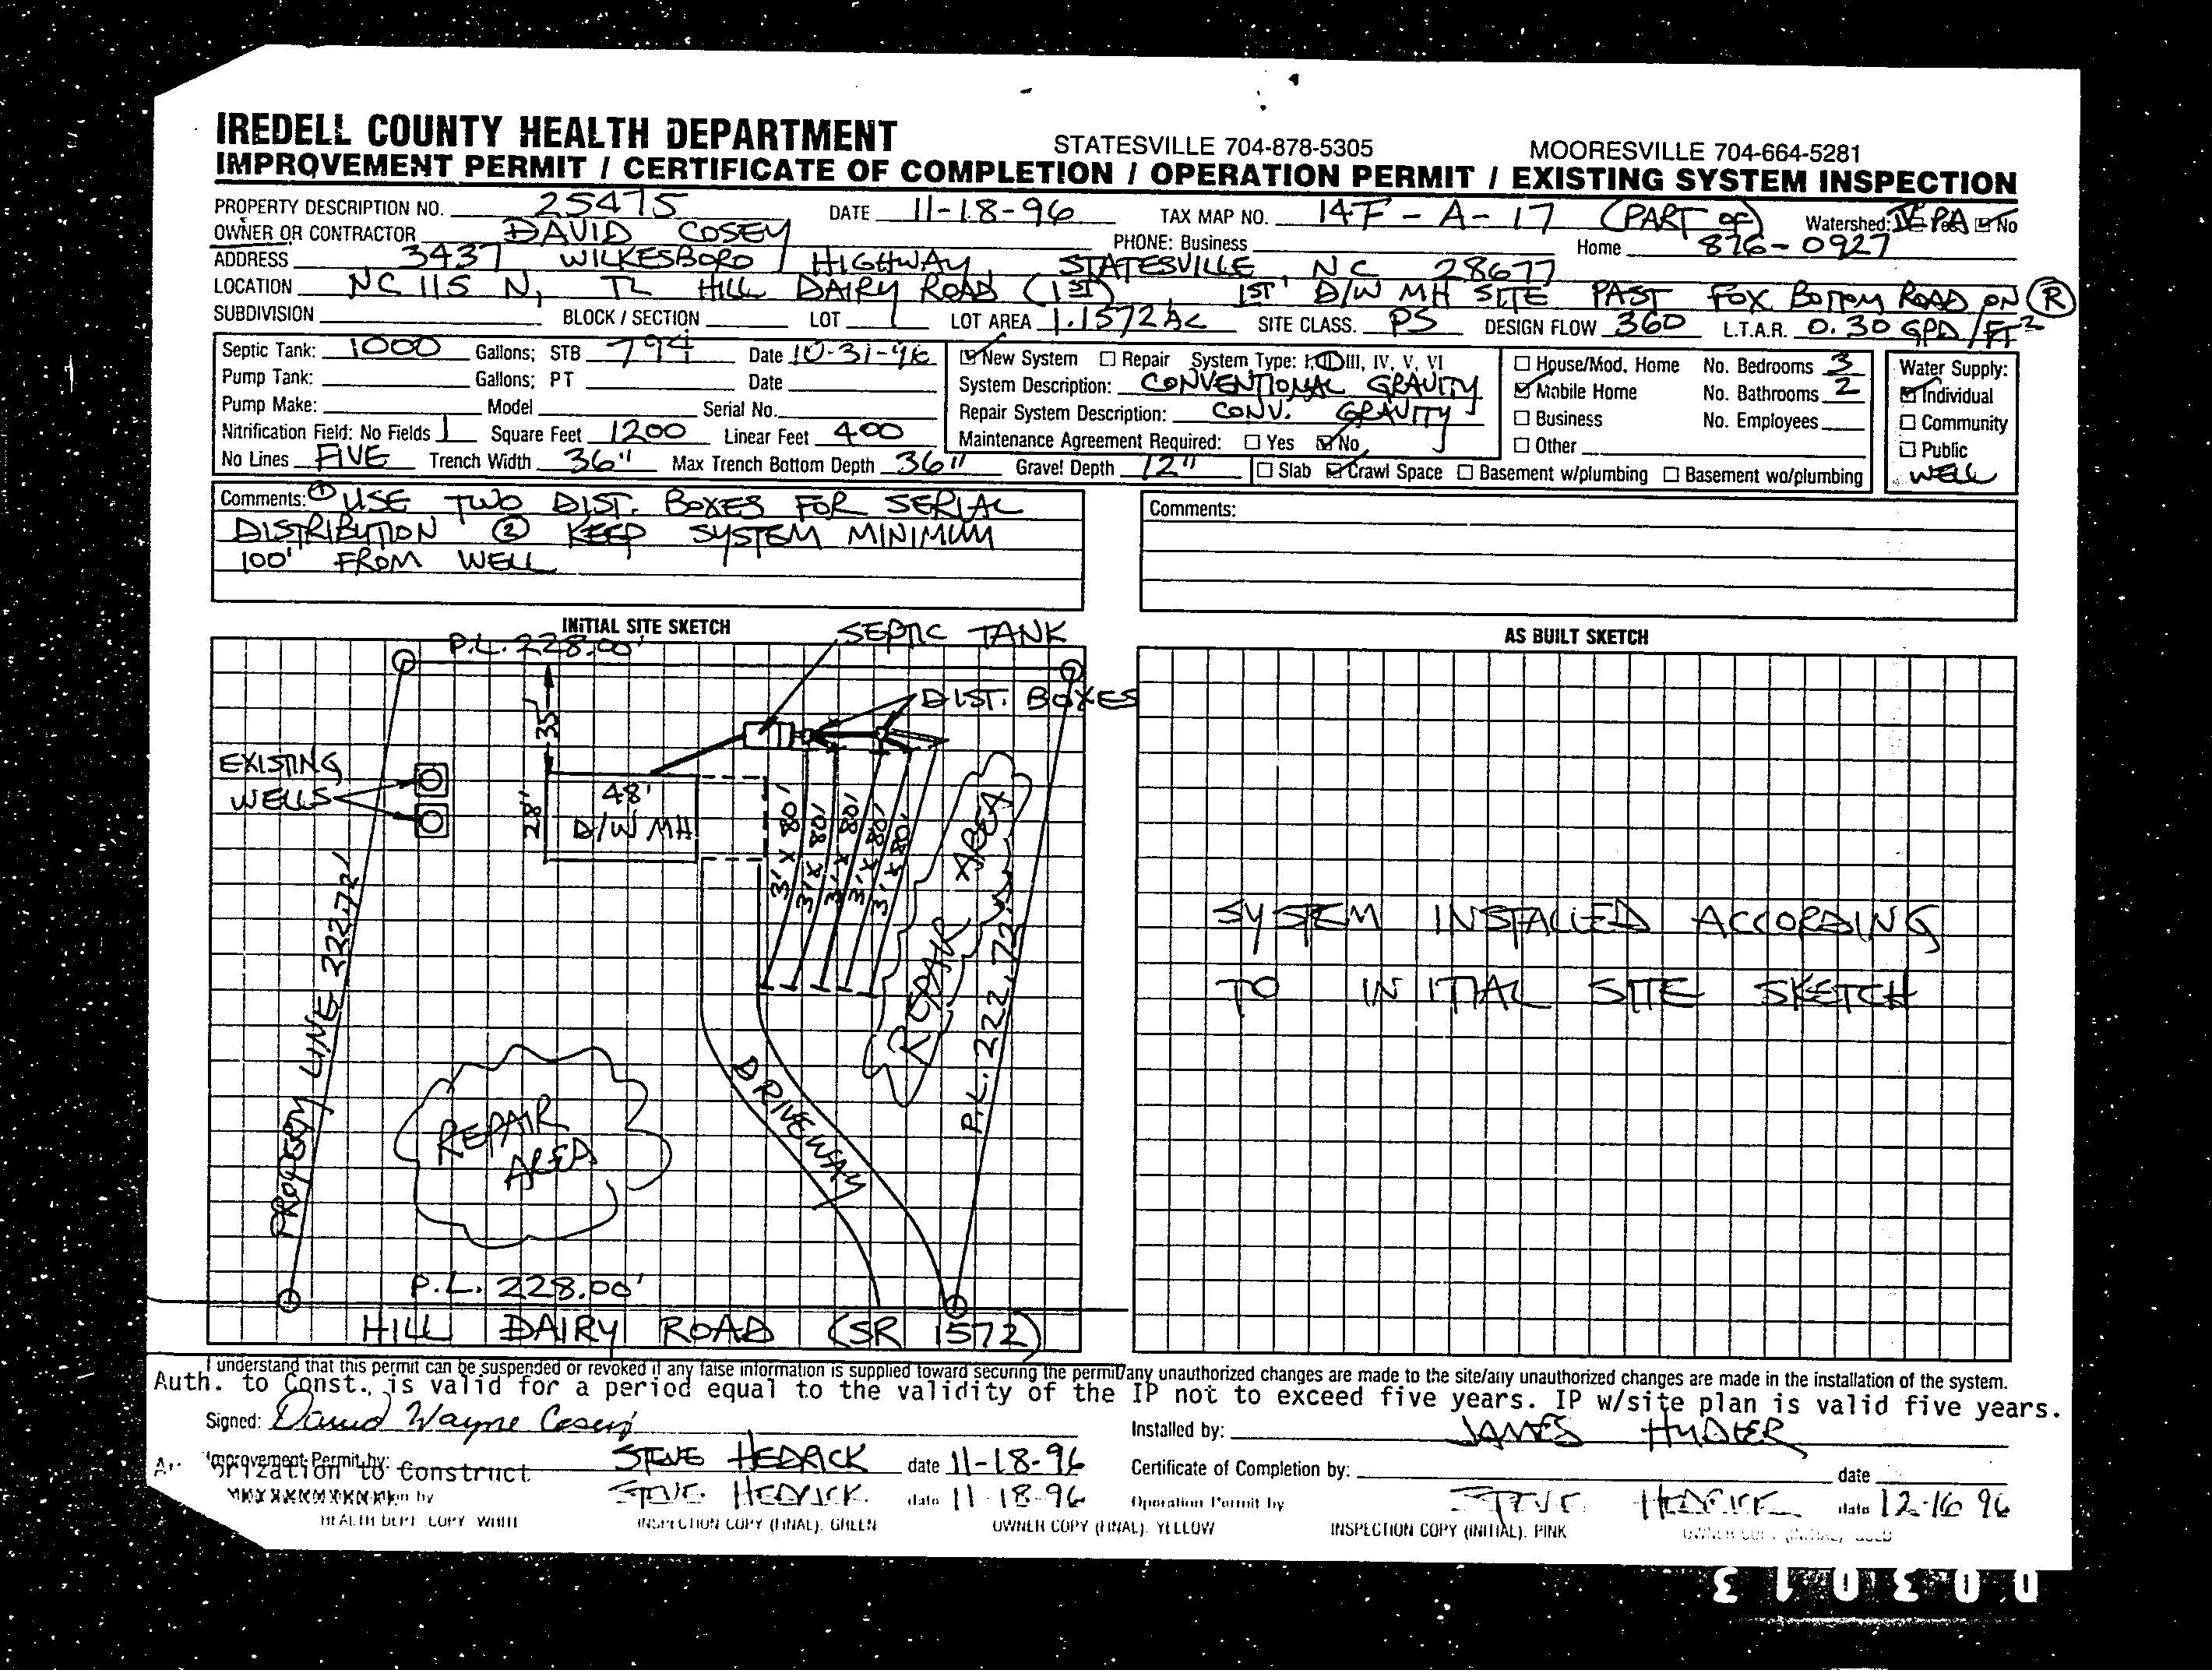 IREDELL COUNTY HEALTH DEPARTMENT STATESVILLE 704-878-5305 MOORESVILLE 704-664-5281
IMPROVEMENT PERMIT / CERTIFICATE OF COMPLETION / OPERATION PERMIT / EXISTING SYSTEM INSPECTION
PROPERTY DESCRIPTION NO. 25475 DATE 11-18-96 TAX MAP NO. 14F-A-17 (PART OF) Watershed: No
OWNER OR CONTRACTOR DAVID COSEY PHONE: Business Home 876-0927
ADDRESS 3437 WILKESBORO HIGHWAY STATESVILLE, NC 28677
LOCATION NC 115 N, TL HILL DAIRY ROAD (1ST) 1ST D/W MH SITE PAST FOX BOTTOM ROAD ON R
SUBDIVISION BLOCK / SECTION LOT 1 LOT AREA 1.1572 AC SITE CLASS. PS DESIGN FLOW 360 L.T.A.R. 0.30 GPD/FT²
Septic Tank: 1000 Gallons; STB 794 Date 10-31-96
Pump Tank: Gallons; PT Date
Pump Make: Model Serial No.
Nitrification Field: No Fields 1 Square Feet 1200 Linear Feet 400
No Lines FIVE Trench Width 36" Max Trench Bottom Depth 36" Gravel Depth 12"
New System Repair System Type: I, II, III, IV, V, VI
System Description: CONVENTIONAL GRAVITY
Repair System Description: CONV. GRAVITY
Maintenance Agreement Required: Yes No
House/Mod. Home No. Bedrooms 3
Mobile Home No. Bathrooms 2
Business No. Employees
Other
Slab Crawl Space Basement w/plumbing Basement wo/plumbing
Water Supply:
Individual
Community
Public
WELL
Comments: ① USE TWO DIST. BOXES FOR SERIAL
DISTRIBUTION ② KEEP SYSTEM MINIMUM
100' FROM WELL
Comments:
INITIAL SITE SKETCH
P.L. 228.00'
SEPTIC TANK
DIST. BOXES
35'
EXISTING
WELLS
28"
48'
D/W MH
3' X 80'
3' X 80'
3' X 80'
3' X 80'
3' X 80'
REPAIR AREA
PROPERTY LINE 222.72'
P.L. 222.72'
DRIVEWAY
REPAIR
AREA
P.L. 228.00'
HILL DAIRY ROAD (SR 1572)
AS BUILT SKETCH
SYSTEM INSTALLED ACCORDING
TO INITIAL SITE SKETCH
I understand that this permit can be suspended or revoked if any false information is supplied toward securing the permit/any unauthorized changes are made to the site/any unauthorized changes are made in the installation of the system.
Auth. to Const. is valid for a period equal to the validity of the IP not to exceed five years. IP w/site plan is valid five years.
Signed: David Wayne Cosey
Installed by: JAMES HUNTER
Improvement Permit by: STEVE HEDRICK date 11-18-96
Certificate of Completion by: date
to Construct by STEVE HEDRICK date 11-18-96
Operation Permit by STEVE HEDRICK date 12-16 96
HEALTH DEPT COPY WHITE INSPECTION COPY (FINAL). GREEN OWNER COPY (FINAL). YELLOW INSPECTION COPY (INITIAL). PINK OWNER COPY (INITIAL) GOLD